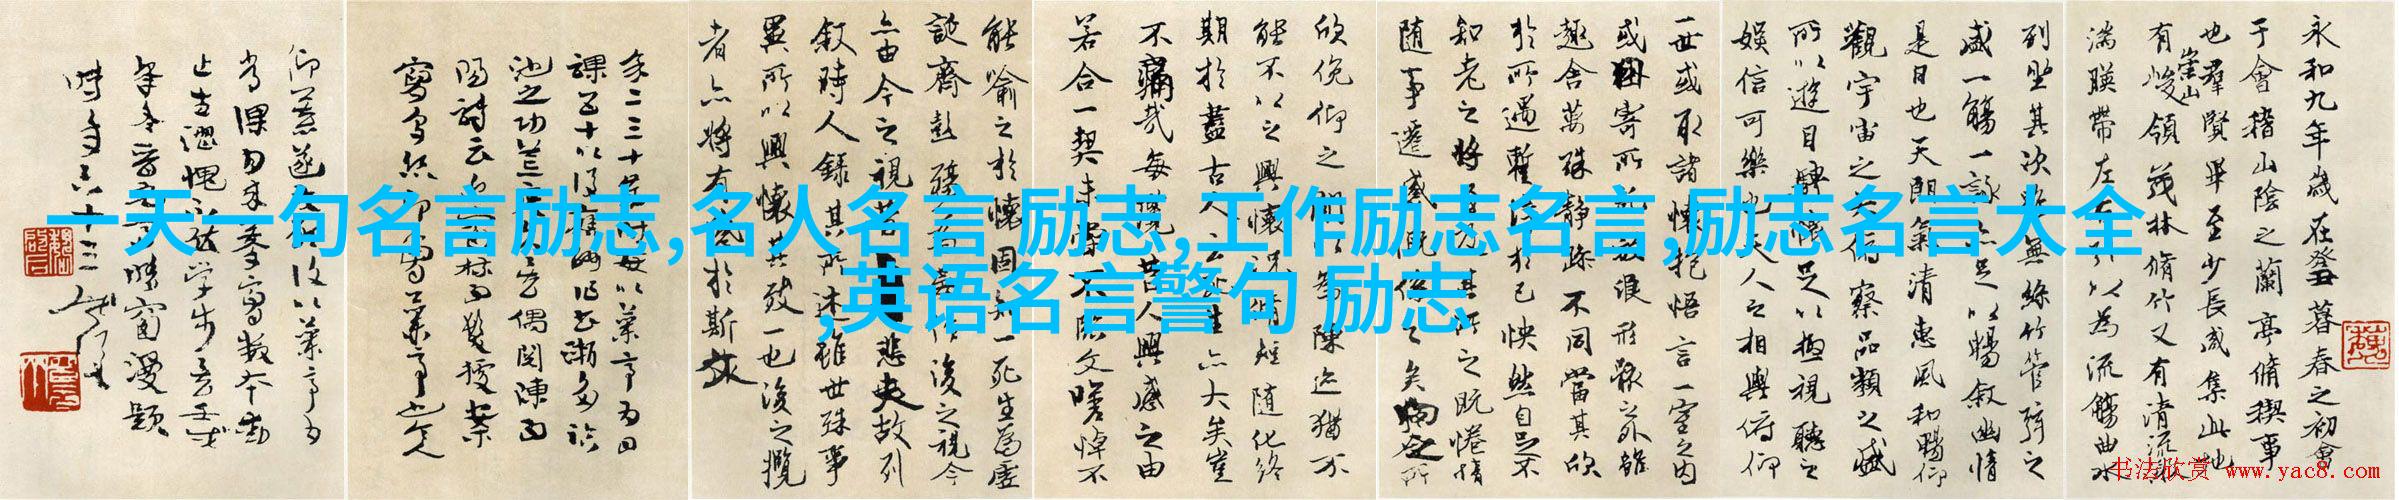 永和九年歲在癸丑暮春之初會
于會稽山陰之蘭亭脩稧事
也群賢畢至少長咸集此地
有崇山峻領茂林脩竹又有清流激
湍暎帶左右引以為流觴曲水
列坐其次雖無絲竹管弦之
盛一觴一詠亦足以暢敘幽情
是日也天朗氣清惠風和暢仰
觀宇宙之大俯察品類之盛
所以遊目騁懷足以極視聽之
娛信可樂也夫人之相與俯仰
一世或取諸懷抱悟言一室之內
或因寄所託放浪形骸之外雖
趣舍萬殊靜躁不同當其欣
於所遇暫得於己怏然自足不
知老之將至及其所之既惓情
隨事遷感慨係之矣向之所
欣俛仰之間以為陳迹猶不
能不以之興懷況脩短隨化終
期於盡古人云死生亦大矣豈
不痛哉每攬昔人興感之由
若合一契未嘗不臨文嗟悼不
能喻之於懷固知一死生為虛
誕齊彭殤為妄作後之視今
亦由今之視昔悲夫故列
敘時人錄其所述雖世殊事
異所以興懷其致一也後之攬
者亦將有感於斯文
一天一句名言励志,名人名言 励志,工作励志名言,励志名言大全
,英语名言警句 励志
书法欣赏 www.yac8.com